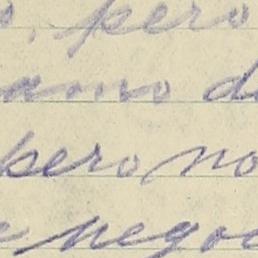 , pero
amo d
pero no
e nego